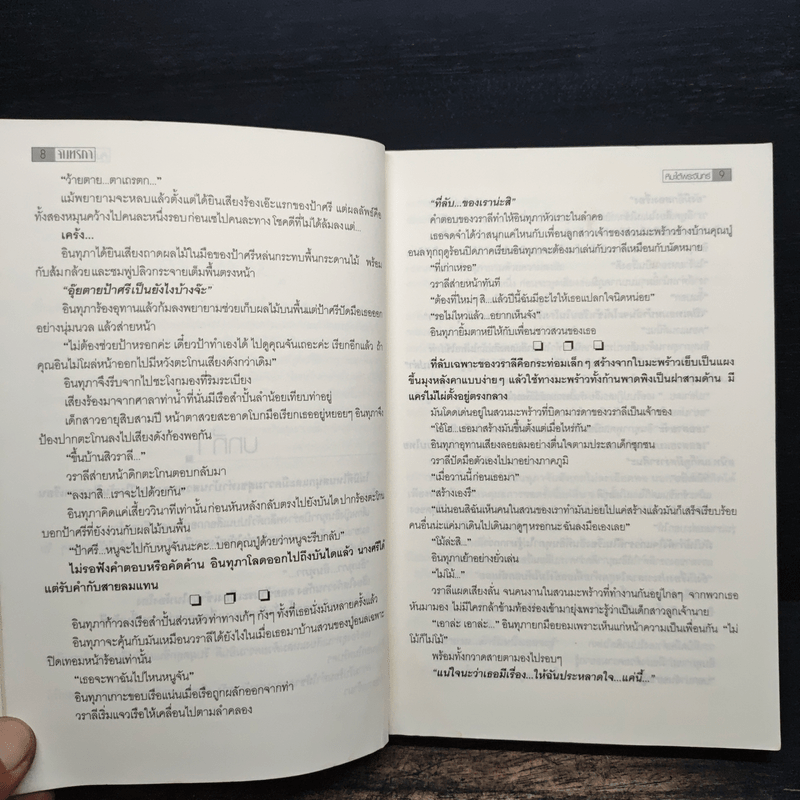 8 จันทริกา
"ว้ายตาย...ตาเถรตก..."
แม้พยายามจะหลบแล้วตั้งแต่ได้ยินเสียงร้องเอ๊ะแรกของป้าศรี แต่ผลลัพธ์คือ
ทั้งสองหมุนคว้างไปคนละหนึ่งรอบ ก่อนเซไปคนละทาง โชคดีที่ไม่ได้ล้มลง แต่...
เคร้ง...
อินทุภาได้ยินเสียงถาดผลไม้ในมือของป้าศรีหล่นกระทบพื้นกระดานไม้ พร้อม
กับส้ม กล้วย และชมพู่ปลิวกระจายเต็มพื้นตรงหน้า
"อุ๊ยตายป้าศรีเป็นยังไงบ้างจ๊ะ"
อินทุภาร้องอุทานแล้วก้มลงพยายามช่วยเก็บผลไม้บนพื้นแต่ป้าศรีปัดมือเธอออก
อย่างนุ่มนวล แล้วส่ายหน้า
"ไม่ต้องช่วยป้าหรอกค่ะ เดี๋ยวป้าทำเองได้ ไปดูคุณจันเถอะค่ะ เรียกอีกแล้ว ถ้า
คุณอินไม่โผล่หน้าออกไปมีหวังตะโกนเสียงดังกว่าเดิม"
อินทุภาจึงรีบจากไปชะโงกมองที่ริมระเบียง
เสียงร้องมาจากศาลาท่าน้ำที่นั่นมีเรือสำปั้นลำน้อยเทียบท่าอยู่
เด็กสาวอายุสิบสามปี หน้าตาสวยสะอาดโบกมือเรียกเธออยู่หยอยๆ อินทุภาจึง
ป้องปากตะโกนลงไปเสียงดังก้องพอกัน
"ขึ้นบ้านสิวราลี..."
วราลีส่ายหน้าดิกตะโกนตอบกลับมา
"ลงมาสิ...เราจะไปด้วยกัน"
อินทุภาคิดแค่เสี้ยววินาทีเท่านั้น ก่อนหันหลังกลับตรงไปยังบันไดปากร้องตะโกน
บอกป้าศรีที่ยังง่วนกับผลไม้บนพื้น
"ป้าศรี...หนูจะไปกับหนูจันนะคะ...บอกคุณปู่ด้วยว่าหนูจะรีบกลับ"
ไม่รอฟังคำตอบหรือคัดค้าน อินทุภาโลดออกไปถึงบันไดแล้ว นางศรีได้
แต่รับคำกับสายลมแทน
อินทุภาก้าวลงเรือสำปั้นส่วนหัว ท่าทางเก้ๆ กังๆ ทั้งที่เธอนั่งมันหลายครั้งแล้ว
อินทุภาจะคุ้นกับมันเหมือนวราลีได้ยังไงในเมื่อเธอมาบ้านสวนของปู่อนลเฉพาะ
ปิดเทอมหน้าร้อนเท่านั้น
"เธอจะพาฉันไปไหนหนูจัน"
อินทุภาเกาะขอบเรือแน่นเมื่อเรือถูกผลักออกจากท่า
วราลีเริ่มแจวเรือให้เคลื่อนไปตามลำคลอง
หิมะใต้พระจันทร์ 9
"ที่ลับ...ของเราน่ะสิ"
คำตอบของวราลีทำให้อินทุภาหัวเราะในลำคอ
เธอจดจำได้ว่าสนุกแค่ไหนกับเพื่อนลูกสาวเจ้าของสวนมะพร้าวข้างบ้านคุณปู่
อนล ทุกฤดูร้อนปิดภาคเรียนอินทุภาจะต้องมาเล่นกับวราลีเหมือนกับนัดหมาย
"ที่เก่าเหรอ"
วราลีส่ายหน้าทันที
"ต้องที่ใหม่ๆ สิ...แล้วปีนี้ฉันมีอะไรให้เธอแปลกใจนิดหน่อย"
"รอไม่ไหวแล้ว...อยากเห็นจัง"
อินทุภายิ้มตาหยีให้กับเพื่อนชาวสวนของเธอ
ที่ลับเฉพาะของวราลีคือกระท่อมเล็กๆ สร้างจากใบมะพร้าวเย็บเป็นแผง
ขึ้นมุงหลังคาแบบง่ายๆ แล้วใช้ทางมะพร้าวทั้งก้านพาดพิงเป็นฝาสามด้าน มี
แคร่ไม้ไผ่ตั้งอยู่ตรงกลาง
มันโดดเด่นอยู่ในสวนมะพร้าวที่บิดามารดาของวราลีเป็นเจ้าของ
"โอ้โฮ...เธอมาสร้างมันขึ้นตั้งแต่เมื่อไหร่กัน"
อินทุภาอุทานเสียงลอยลมอย่างตื่นใจตามประสาเด็กซุกซน
วราลีปัดมือตัวเองไปมาอย่างภาคภูมิ
"เมื่อวานนี้ก่อนเธอมา"
"สร้างเองรึ"
"แน่นอนสิฉันเห็นคนในสวนของเราทำมันบ่อยไปแค่สร้างแล้วมันก็เสร็จเรียบร้อย
คนอื่นน่ะแค่มาเดินไปเดินมาดูๆ หรอกนะฉันลงมือเองเลย"
"โม้ล่ะสิ..."
อินทุภาเย้าอย่างยั่วเล่น
"ไม่โม้..."
วราลีแผดเสียงลั่น จนคนงานในสวนมะพร้าวที่ทำงานกันอยู่ใกล้ๆ จากพวกเธอ
หันมามอง ไม่มีใครกล้าข้ามท้องร่องเข้ามายุ่งเพราะรู้ว่าเป็นเด็กสาวลูกเจ้านาย
"เอาล่ะ เอาล่ะ..." อินทุภายกมือยอมเพราะเห็นแก่หน้าความเป็นเพื่อนกัน "ไม่
โม้ก็ไม่โม้..."
พร้อมทั้งกวาดสายตามองไปรอบๆ
"แน่ใจนะว่าเธอมีเรื่อง...ให้ฉันประหลาดใจ...แค่นี้..."